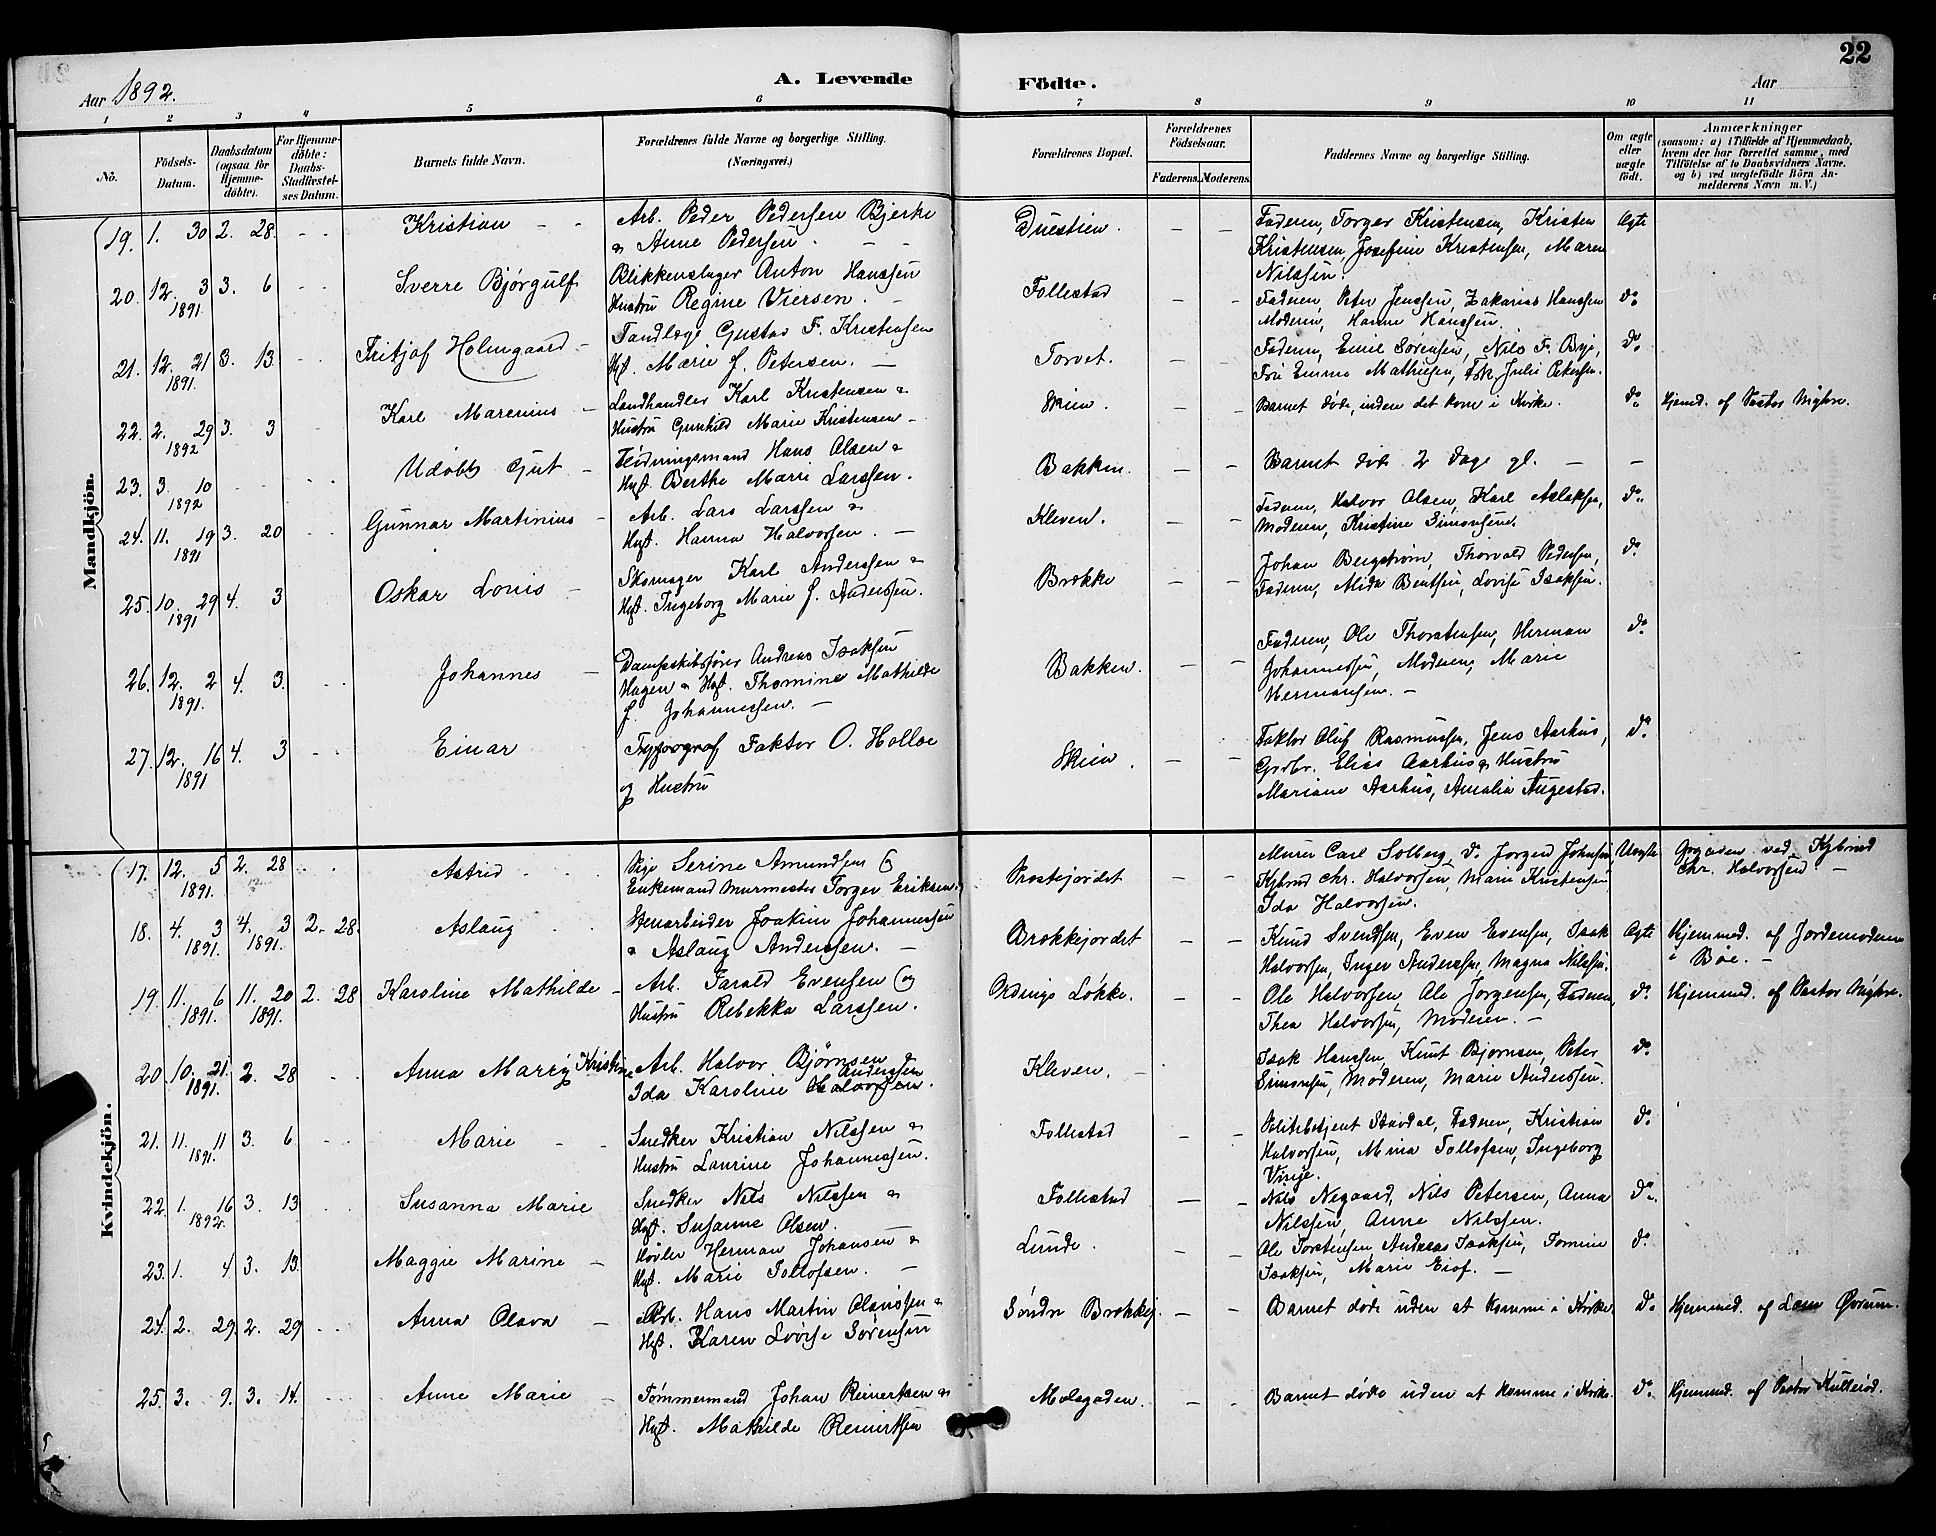 22
Aar 1892.
A. Levende Födte.
Aar
1 2 3 4 5 6 7 8 9 10 11
No.
Födsels-Datum.
Daabsdatum (ogsaa for Hjemmedöbte).
For Hjemmedöbte: Daabs-Stadfæstelses Datum.
Barnets fulde Navn.
Forældrenes fulde Navne og borgerlige Stilling. (Næringsvei.)
Forældrenes Bopæl.
Forældrenes Födselsaar.
Faderens. Moderens.
Faddernes Navne og borgerlige Stilling.
Om ægte eller uægte födt.
Anmærkninger (saasom: a) i Tilfælde af Hjemmedaab, hvem der har forrettet samme, med Tilföielse af to Daabsvidners Navne. og b) ved uægtefödte Börn Anmelderens Navn m. V.)
Mandkjön.
19. 1. 30 2. 28. Kristian
Arb. Peder Pedersen Bjerke
& Anne Pedersen.
Duestien.
Faderen, Torger Kristensen, Kristen
Kristensen, Josefine Kristensen, Maren
Nilssen.
Ægte
20. 12. 3 1891 3. 6 Sverre Bjørgulf
Blikkenslager Anton Hanssen
Hustru Regine Viersen.
Follestad
Faderen, Peter Jenssen, Zakarias Hanssen
Moderen, Hanne Hanssen.
do
21. 12. 21 1891. 3. 13 Fritjof Holmgaard
Tandlæge Gustav F. Kristensen
Hust. Marie f. Petersen.
Torvet.
Faderen, Emil Sørensen, Nils F. Bye,
Fru Emma Mathiesen, Frk. Julie Petersen.
do
22. 2. 29 1892 3. 3 Karl Marenius
Landhandler Karl Kristensen &
Hustru Gunhild Marie Kristensen
Skien.
Barnet døde, inden det kom i Kirke.
do
Hjemmd. af Pastor Myhre.
23. 3. 10 1892 Udøbt Gut
Hans Olsen &
Hust. Berthe Marie Larssen.
Bakken.
Barnet døde 2 Dage gl.
24. 11. 19 1891 3. 20 Gunnar Martinius
Arb. Lars Larssen &
Hust. Hanna Halvorsen.
Kleven.
Faderen, Halvor Olsen, Karl Aslaksen,
Moderen, Kristine Simonsen.
do
25. 10. 29 1891 4. 3 Oskar Louis
Skomager Karl Anderssen &
Hust. Ingeborg Marie f. Anderssen.
Brække
Johan Bergstrøm, Thorvald Pedersen,
Faderen, Alida Bentsen, Lovise Isaksen.
do
26. 12. 2 1891. 4. 3. Johannes
Dampskibsfører Andreas Isaksen
Hagen & Hust. Thomine Mathilde
f. Johannessen.
Bakken.
Faderen, Ole Thorstensen, Herman
Johannessen, Moderen, Marie
Hermansen.
do
27. 12. 16 1891 4. 3 Einar
Typograf Faktor O. Holloe
og Hustru
Skien.
Faktor Oluf Rasmussen, Jens Aarhus,
Elias Aarhus & Hustru
Mariane Aarhus, Amalia Augestad.
do
Kvindekjön.
17. 12. 5 1891. 2. 28 Astrid
Pige Serine Amundsen &
Enkemand Murmester Torger Eriksen.
Prestejordet
Murer Carl Solberg, do Jørgen Johnsen
Kjbmd Chr. Halvorsen, Marie Kristensen
Ida Halvorsen.
Uægte
ved Kjbmd
Chr. Halvorsen.
18. 4. 3 1891. 4. 3 1891. 2. 28. Aslaug
Stenarbeider Joakim Johannessen
& Aslaug Anderssen.
Brækkejordet
Knud Svendsen, Even Evensen, Isak
Halvorsen, Inger Anderssen, Magna Nilssen.
Ægte
Hjemmed. af Jordemoderen
Bøe.
19. 11. 6 1891. 11. 20 1891. 2. 28 Karoline Mathilde
Arb. Tarald Evensen &
Hustru Rebekka Larssen.
Løkke.
Ole Halvorsen, Ole Jørgensen, Faderen,
Thea Halvorsen, Moderen.
do
Hjemmed. af Pastor Myhre.
20. 10. 21. 1891. 2. 28 Anna Marry Kristine
Arb. Halvor Bjørnsen
Ida Karoline Halvorsen Anderssen.
Kleven.
Isak Hanssen, Knut Bjørnsen, Peter
Simonsen, Moderen, Marie Anderssen.
do
21. 11. 11 1891. 3. 6 Marie
Snedker Kristian Nilssen &
Hustru Laurine Johannessen.
Follestad
Politibetjent Stavdal, Faderen, Kristian
Halvorsen, Mina Tollofsen, Ingeborg
Vinje.
do
22. 1. 16 1892. 3. 13 Susanna Marie
Snedker Nils Nilssen &
Hust. Susanne Olsen.
Follestad
Nils Negaard, Nils Petersen, Anna
Nilssen, Anne Nilssen.
do
23. 1. 4 3. 13. Maggie Marine
Høvler Herman Johansen &
Hust. Marie Tollofsen.
Lunde.
Ole Torstensen, Andreas Isaksen, Tomine
Isaksen, Marie Eiof.
do
24. 2. 29. 2. 29 Anna Olava
Arb. Hans Martin Olanssen &
Hust. Karen Lovise Sørensen
Søndre Brækkej.
Barnet døde uden at komme i Kirke
do
Hjemmed. af Øvrum.
25. 3. 9. 3. 14. Anne Marie
Tømmermand Johan Reinertsen &
Hust. Mathilde Reinertsen
Molegaden.
Barnet døde uden at komme i Kirke.
do
Hjemmed. af Pastor Kulleid.